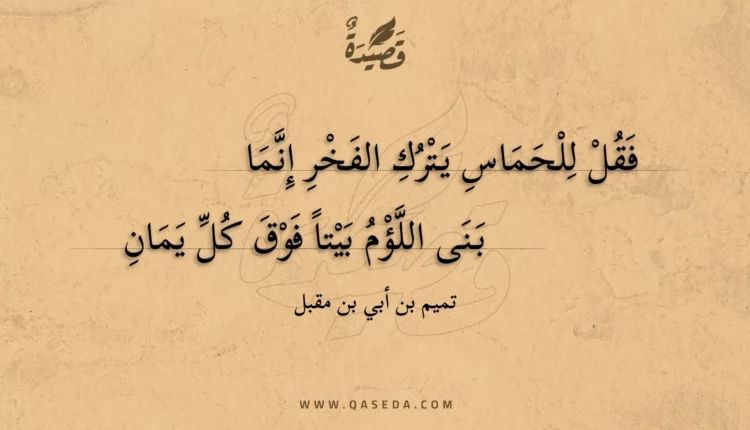 قَصِيْدَةٌ
فَقُلْ لِلْحَمَاسِ يَتْرُكِ الفَخْرِ إِنَّمَا
بَنَى اللَّؤْمُ بَيْتاً فَوْقَ كُلِّ يَمَانِ
تميم بن أبي بن مقبل
WWW.QASEDA.COM